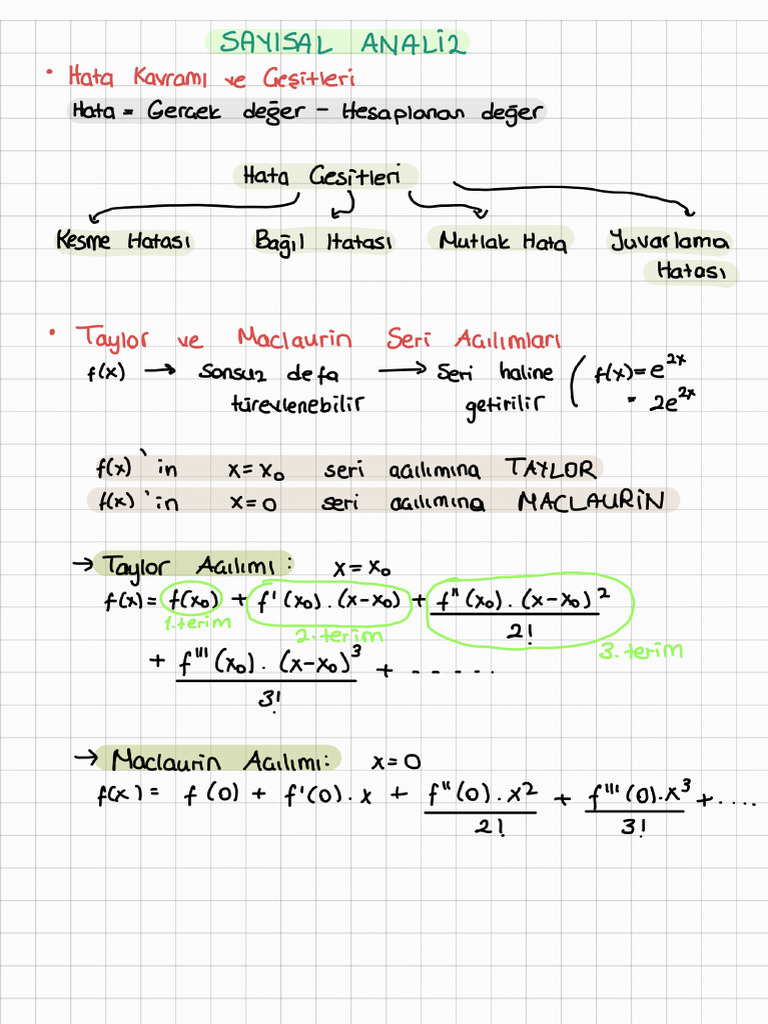 SAYISAL ANALİZ
• Hata Kavramı ve Çeşitleri
Hata = Gercek değer - Hesaplanan değer
Hata Çeşitleri
Kesme Hatası Bağıl Hatası Mutlak Hata Yuvarlama
Hatası
• Taylor ve Maclaurin Seri Acılımları
f(x) → Sonsuz defa → Seri haline ( f(x)=e^2x
türevlenebilir getirilir = 2e^2x
f(x)`in x=x₀ seri acılımına TAYLOR
f(x)`in x=0 seri acılımına MACLAURİN
→ Taylor Acılımı: x=x₀
f(x)= f(x₀) + f'(x₀).(x-x₀) + f''(x₀).(x-x₀)²/2!
1.terim 2.terim 3.terim
+ f'''(x₀).(x-x₀)³/3! + - - - - -
→ Maclaurin Acılımı: x=0
f(x)= f(0) + f'(0).x + f''(0).x²/2! + f'''(0).x³/3! + ....